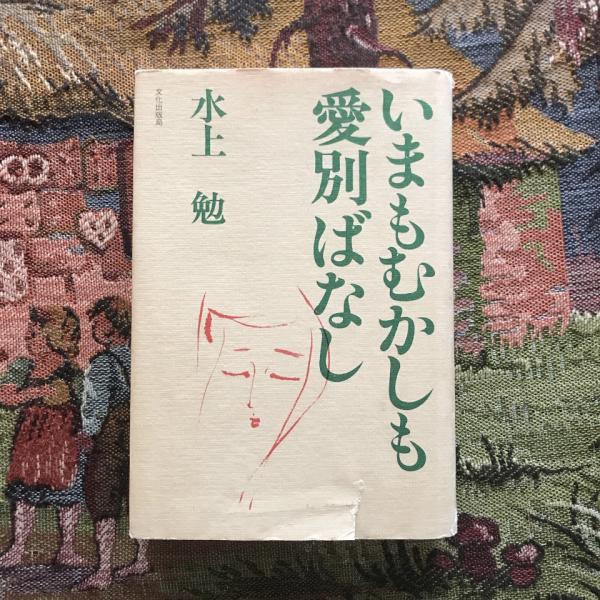 いまもむかしも
愛別ばなし
水上 勉
文化出版局